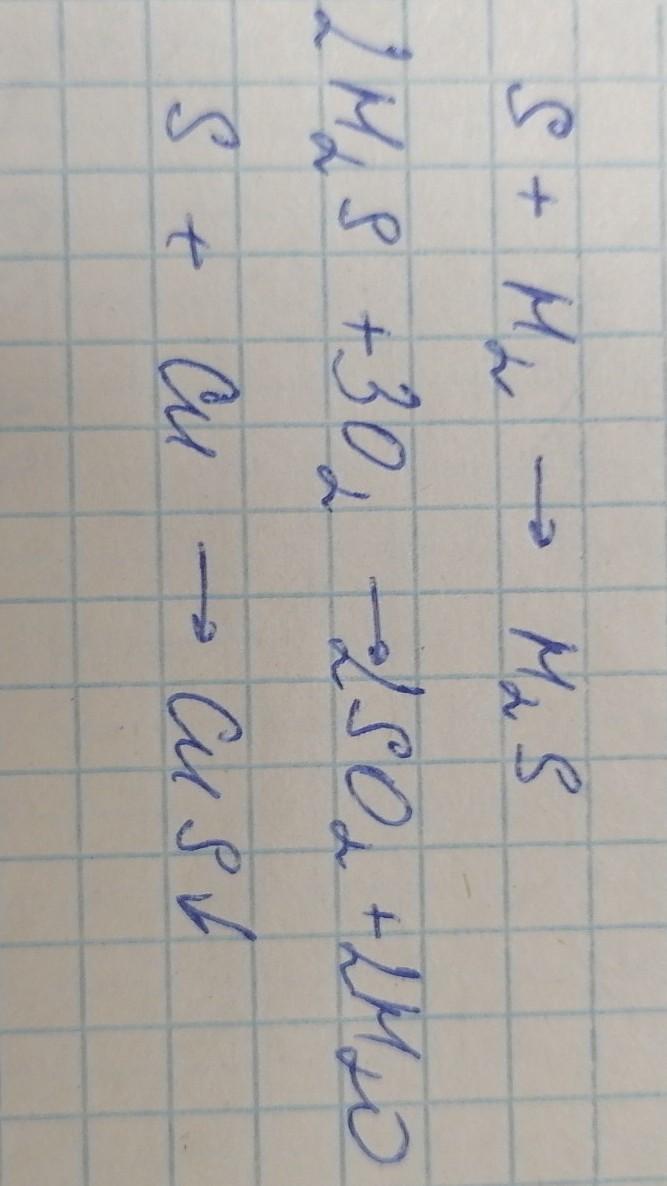 S + H₂ → H₂S
2H₂S + 3O₂ → 2SO₂ + 2H₂O
S + Cu → CuS↓